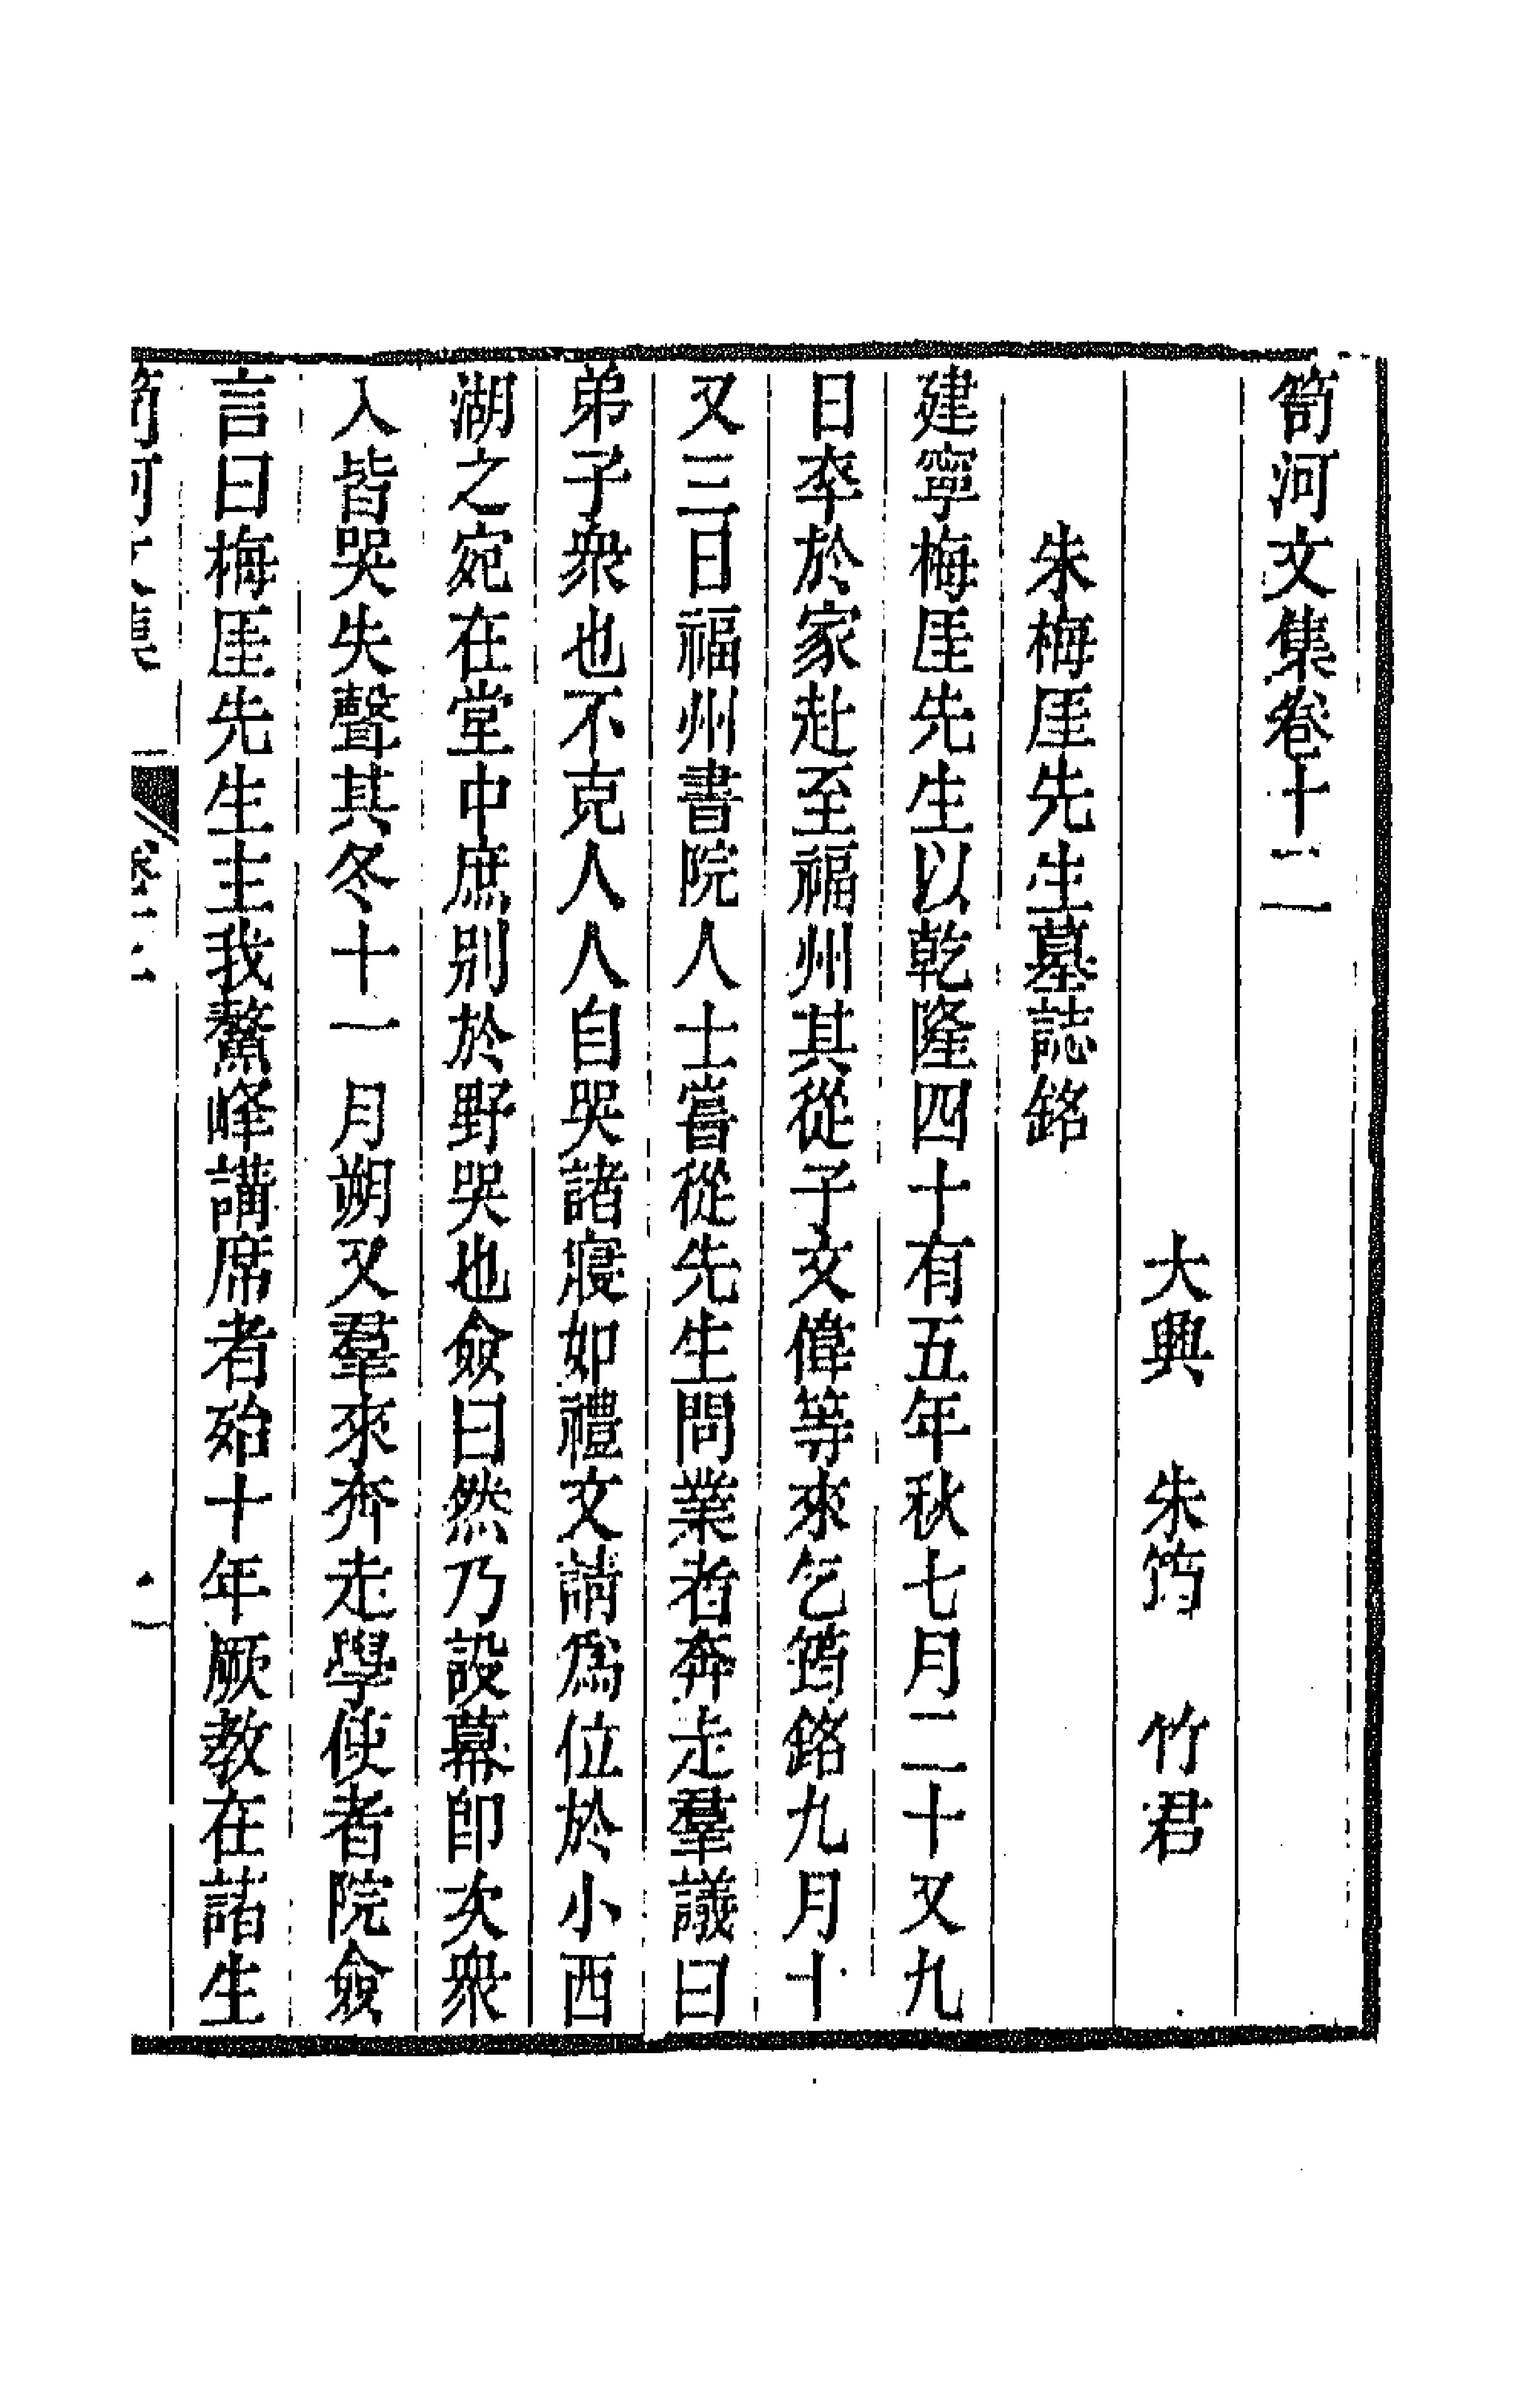 笥河文集卷十二
大興　朱筠　竹君
朱梅厓先生墓誌銘
建寧梅厓先生以乾隆四十有五年秋七月二十又九
日卒於家赴至福州其從子文偉等來乞筠銘九月十
又三日福州書院人士嘗從先生問業者奔走羣議曰
弟子衆也不克人人自哭諸寢如禮文請爲位於小西
湖之宛在堂中庶别於野哭也僉曰然乃設幕卽次衆
入皆哭失聲其冬十一月朔又羣來奔走學使者院僉
言曰梅厓先生主我鰲峰講席者殆十年厥教在諸生
笥河文集　卷十二　一